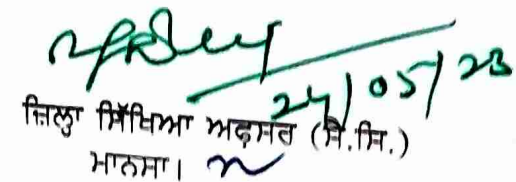 24/05/23
ਜ਼ਿਲ੍ਹਾ ਸਿੱਖਿਆ ਅਫ਼ਸਰ (ਸੈ.ਸਿ.)
ਮਾਨਸਾ।